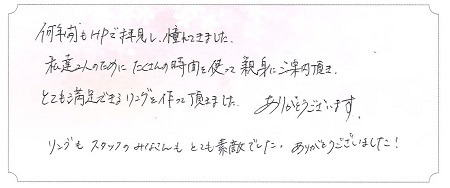 何年前もHPで拝見し、憧れてきました。
私達2人のために たくさんの時間を使って 親身にご案内頂き、
とても満足できるリングを作って頂きました。 ありがとうございます。
リングも スタッフのみなさんも とても素敵でした。ありがとうございました!